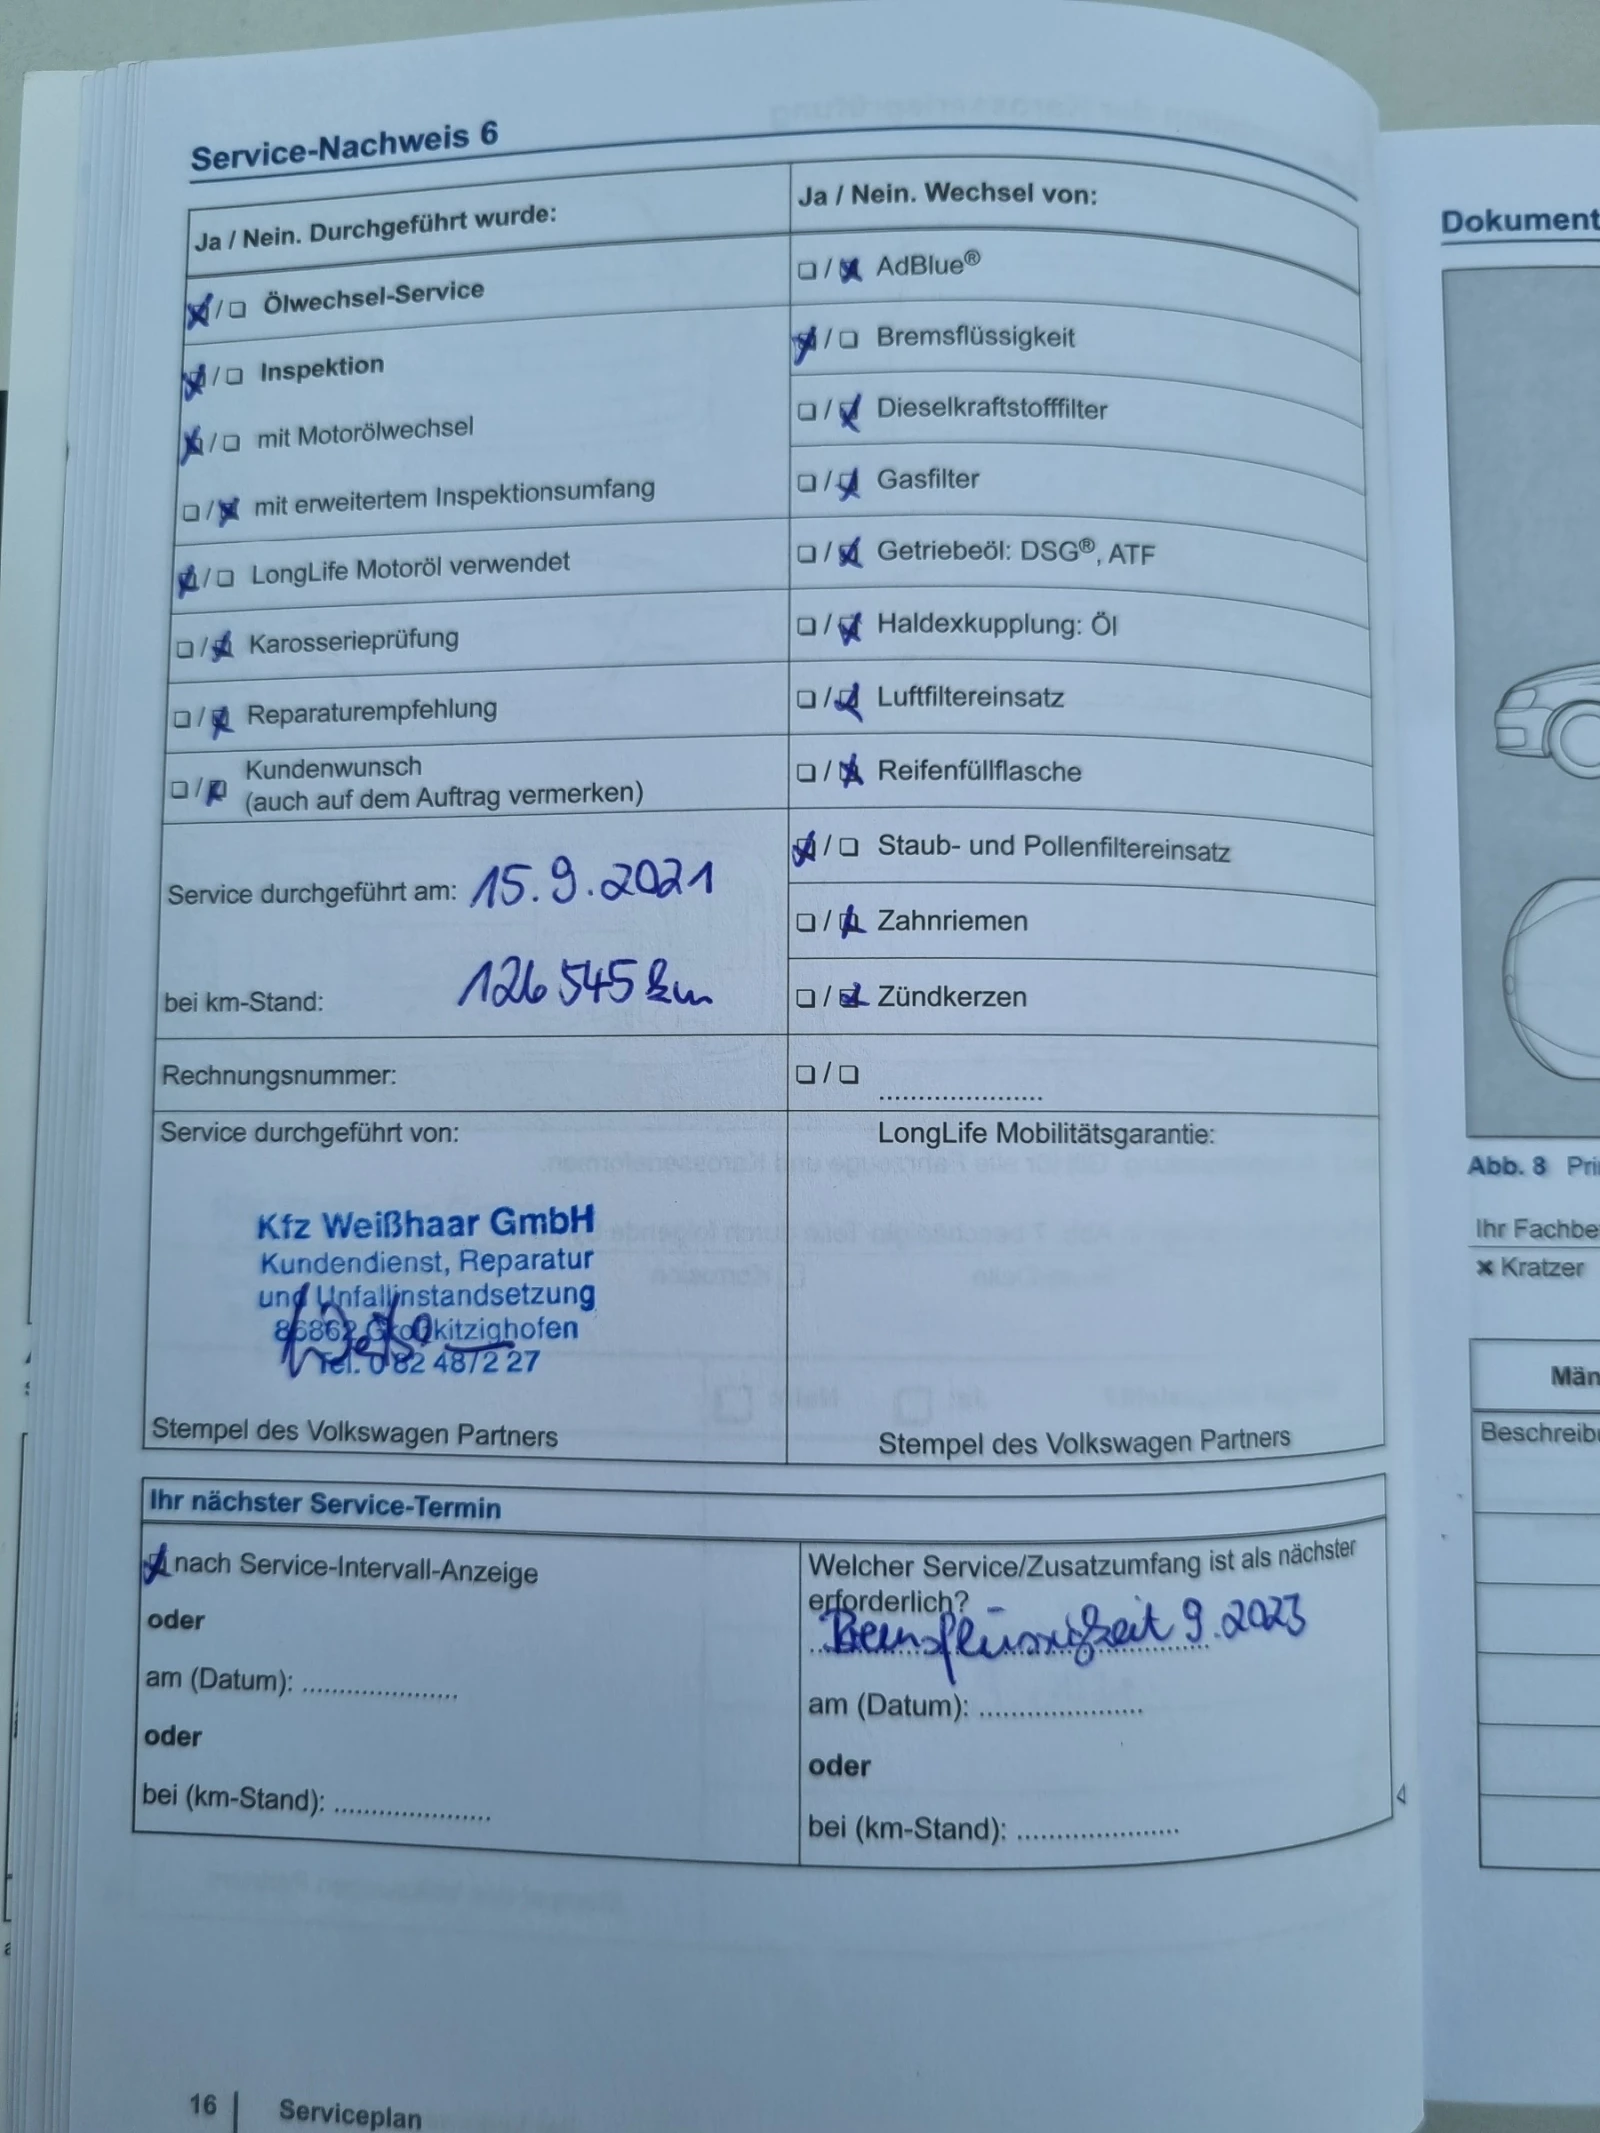 Service-Nachweis 6
Ja / Nein. Durchgeführt wurde:
☒/☐ Ölwechsel-Service
☒/☐ Inspektion
☒/☐ mit Motorölwechsel
☐/☒ mit erweitertem Inspektionsumfang
☒/☐ LongLife Motoröl verwendet
☐/☒ Karosserieprüfung
☐/☒ Reparaturempfehlung
☐/☒ Kundenwunsch
(auch auf dem Auftrag vermerken)
Service durchgeführt am: 15.9.2021
bei km-Stand: 126 545 km
Rechnungsnummer:
Service durchgeführt von:
Kfz Weißhaar GmbH
Kundendienst, Reparatur
und Unfallinstandsetzung
86862 Großkitzighofen
Tel. 0 82 48/2 27
Stempel des Volkswagen Partners
Ja / Nein. Wechsel von:
☐/☒ AdBlue®
☒/☐ Bremsflüssigkeit
☐/☒ Dieselkraftstofffilter
☐/☒ Gasfilter
☐/☒ Getriebeöl: DSG®, ATF
☐/☒ Haldexkupplung: Öl
☐/☒ Luftfiltereinsatz
☐/☒ Reifenfüllflasche
☒/☐ Staub- und Pollenfiltereinsatz
☐/☒ Zahnriemen
☐/☒ Zündkerzen
☐/☐ .....................
LongLife Mobilitätsgarantie:
Stempel des Volkswagen Partners
Ihr nächster Service-Termin
☒ nach Service-Intervall-Anzeige
oder
am (Datum): ....................
oder
bei (km-Stand): ....................
Welcher Service/Zusatzumfang ist als nächster
erforderlich?
Bremsflüssigkeit 9.2023
am (Datum): .....................
oder
bei (km-Stand): .....................
16 | Serviceplan
Dokument
Abb. 8 Pri
Ihr Fachbe
✖ Kratzer
Män
Beschreib